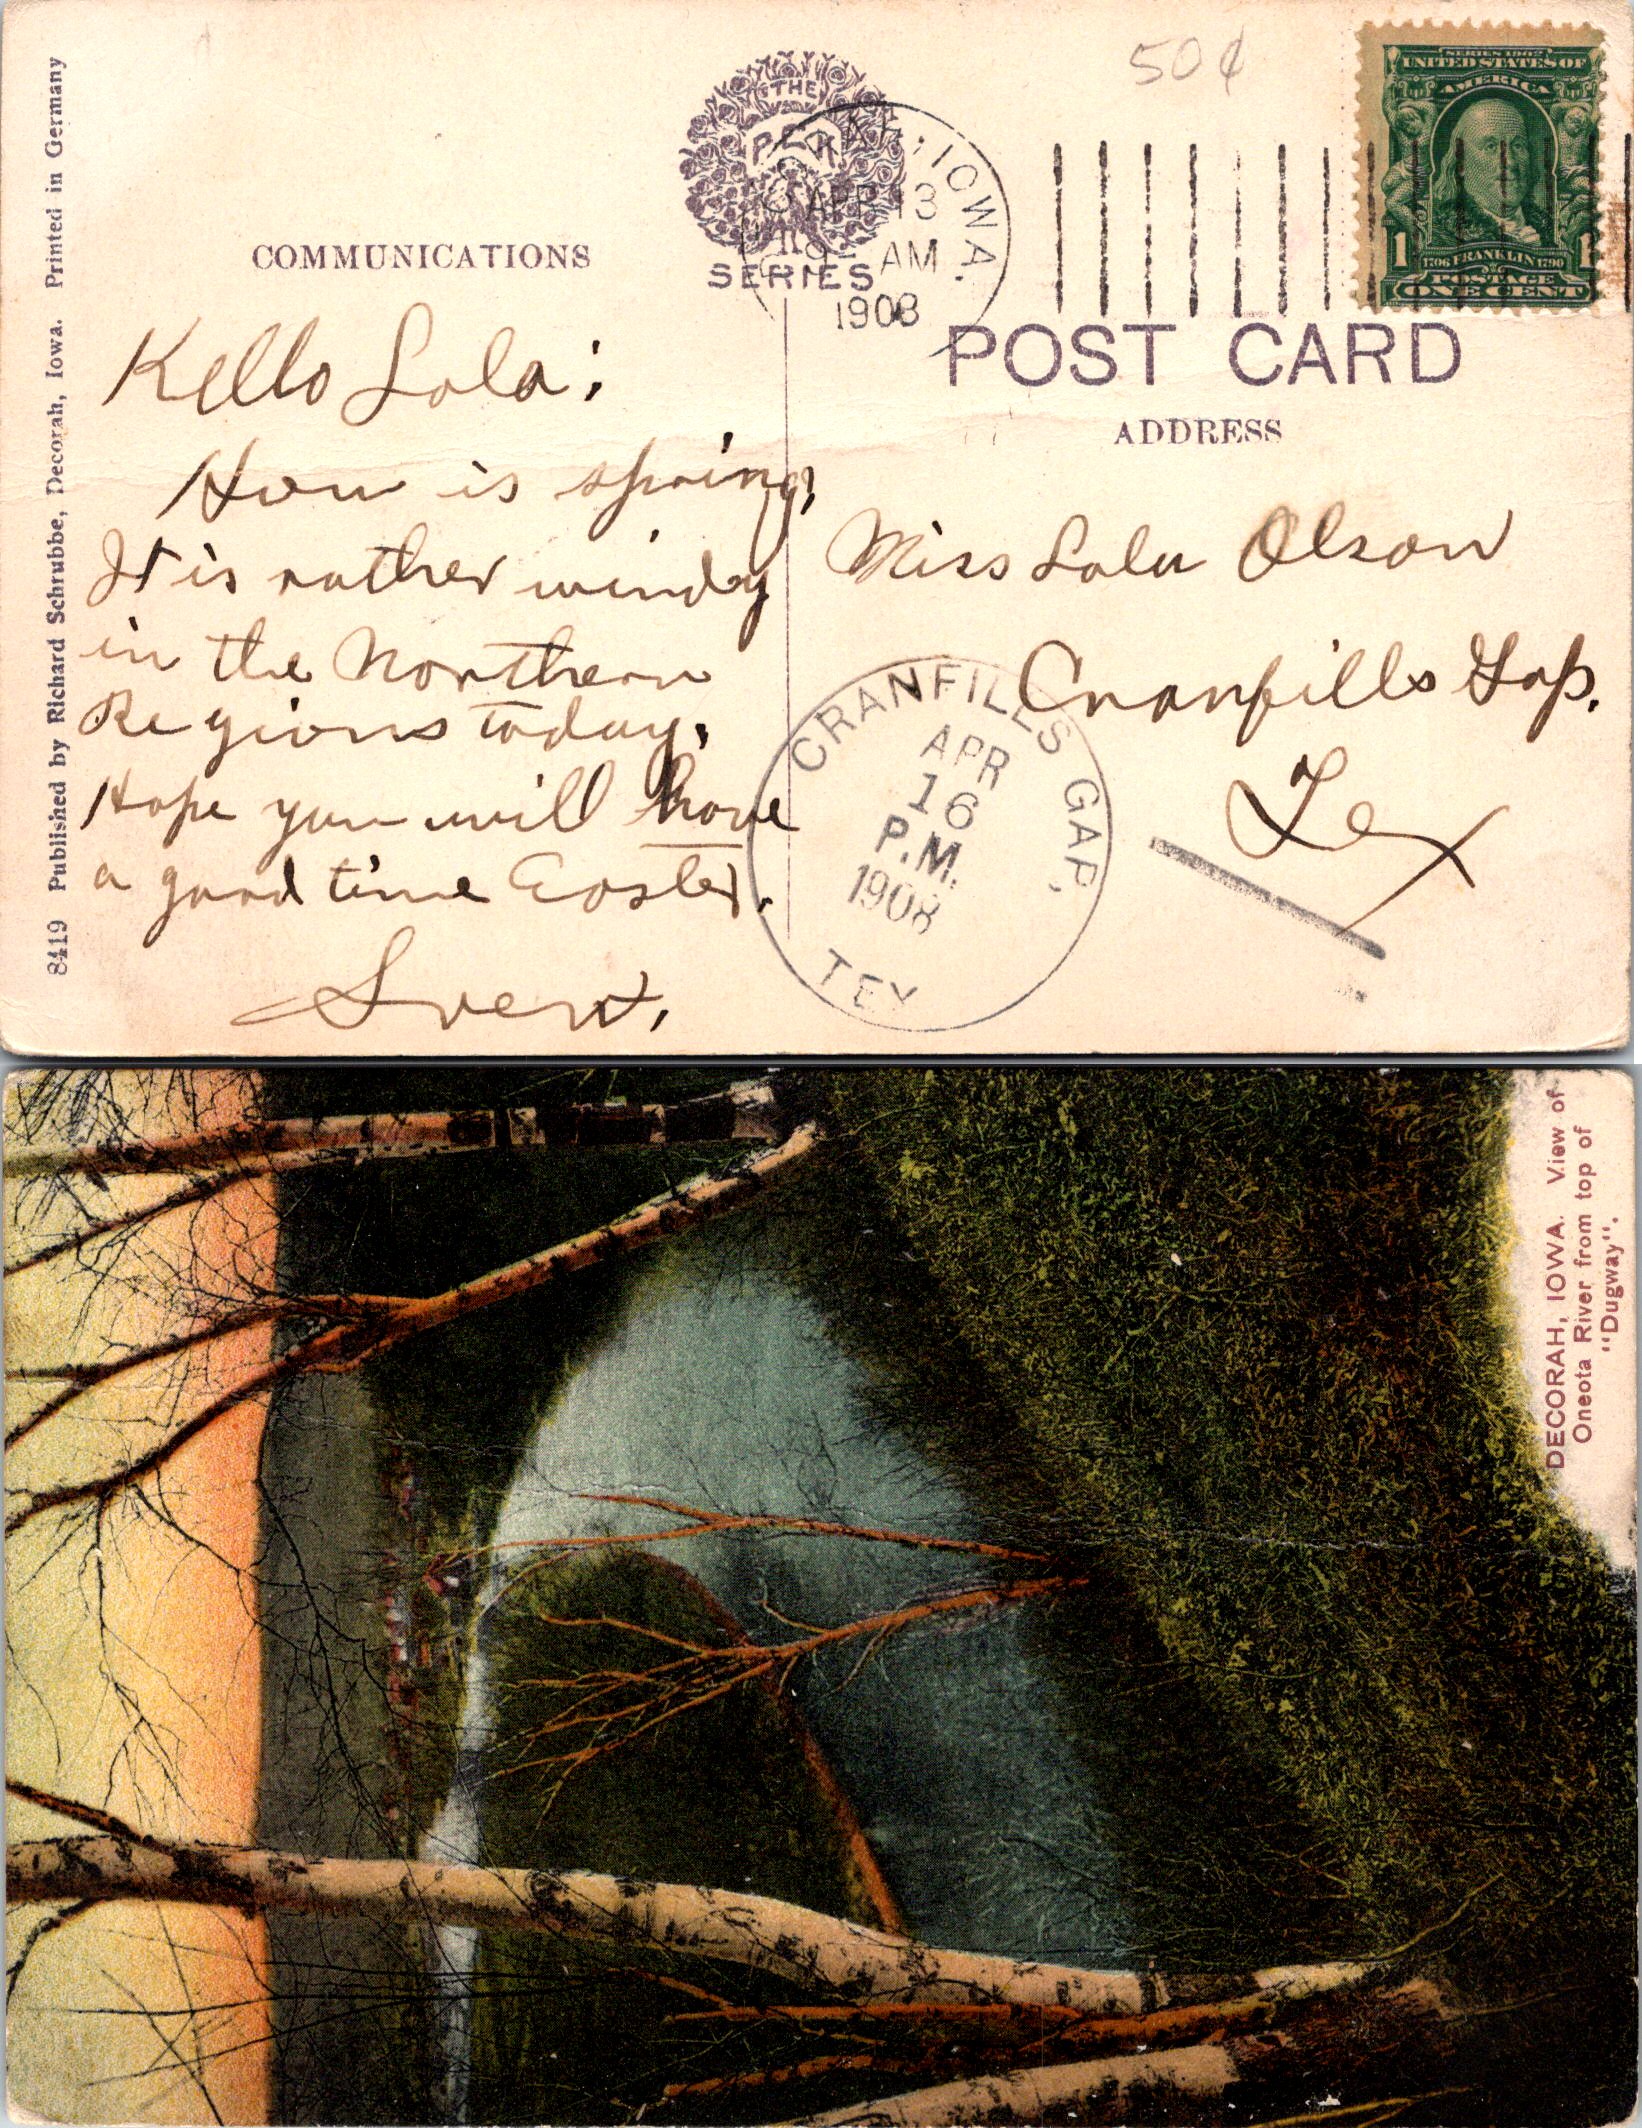 8419 Published by Richard Schrubbe, Decorah, Iowa. Printed in Germany
COMMUNICATIONS
THE
PCK
SERIES
IOWA.
APR 13
AM
1908
50¢
SERIES 1902
UNITED STATES OF
AMERICA
1 1706 FRANKLIN 1790 1
POSTAGE
ONE CENT
POST CARD
ADDRESS
Hello Lola:
How is spring?
It is rather windy
in the Northern
Regions today.
Hope you will have
a good time Easter.
Sven.
Miss Lola Olson
Cranfills Gap.
Tex
CRANFILLS GAP,
APR
16
P.M.
1908
TEX
DECORAH, IOWA. View of
Oneota River from top of
"Dugway".